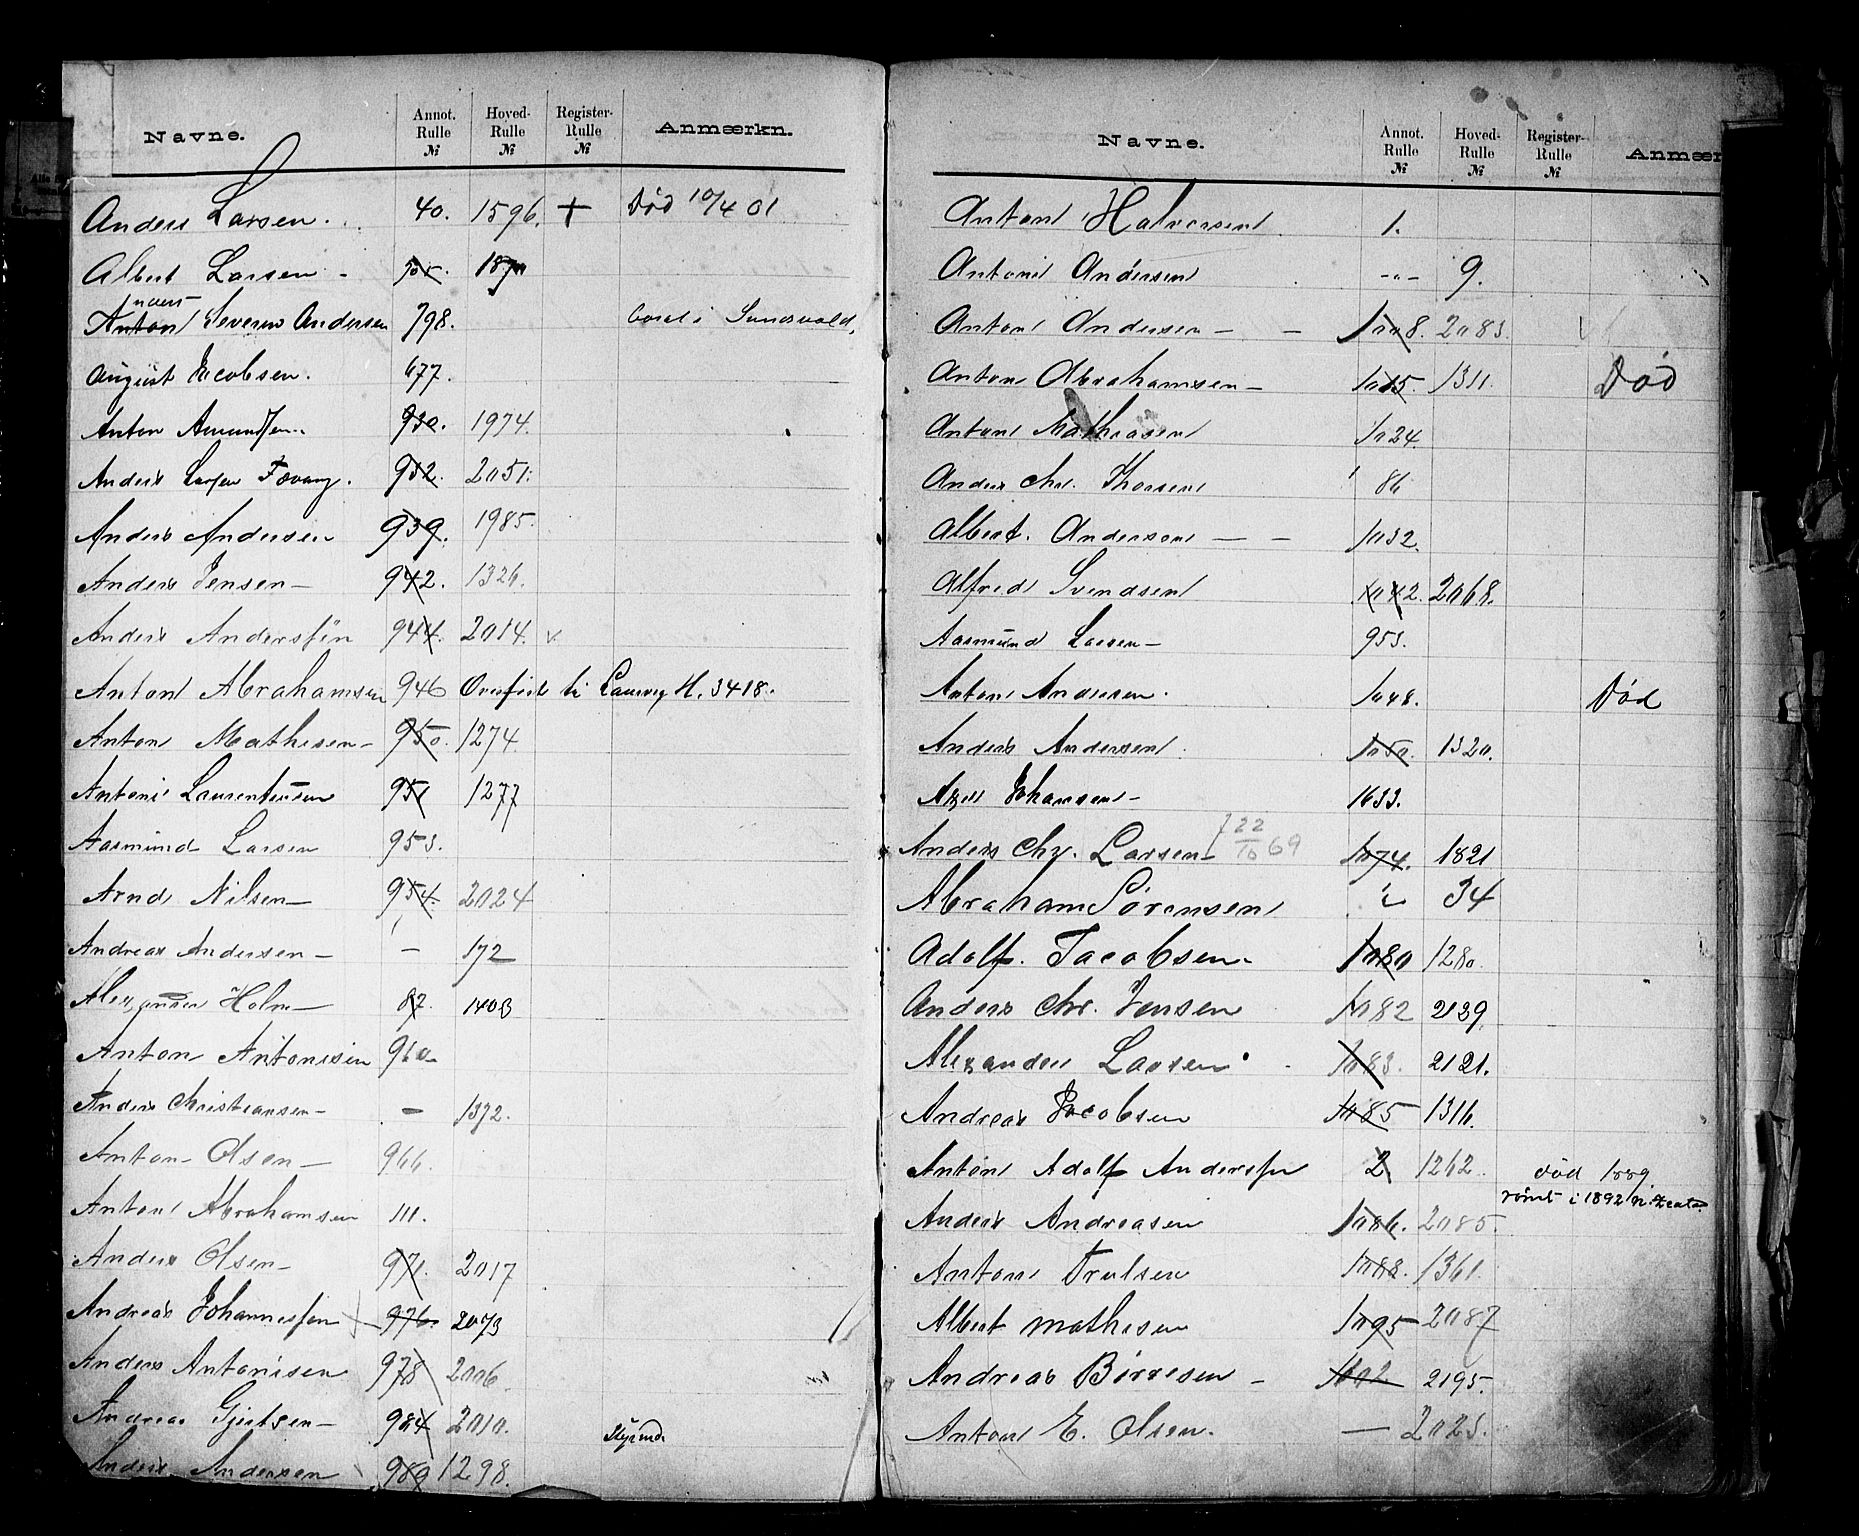 Navne. Annot. Rulle № Hoved- Rulle № Register- Rulle № Anmærkn.
Anders Larsen. 40. 1596. + Død 10/4 01
Albert Larsen -
Anders
Anton Severin Andersen 798. bosat i Sundsvald,
August Jacobsen. 677.
Anton Amundsen. 930. 1974.
Anders Larsen Tovang. 932. 2051.
Anders Andersen 939. 1985.
Anders Jensen - 942. 1326.
Anders Andersen 944. 2014. x
Anton Abrahamsen 946 Overført til Laurvig H. 3418.
Anton Mathisen - 950. 1274.
Anton Laurentiussen 951 1277
Aasmund Larsen 953.
Arnd Nilsen - 954. 2024
Andreas Andersen - - 172
Alexander Holm - 87. 1403
Anton Antonisen 960
Anders Christiansen - - 1372.
Anton Olsen - 966.
Anton Abrahamsen 111.
Anders Olsen - 971. 2017
Andreas Johannessen 976. 2073
Anders Antonisen 978 2006.
Andreas Gjertsen - 984 2010.
Anders Andersen 989 1298.
Navne. Annot. Rulle № Hoved- Rulle № Register- Rulle № Anmær
Anton Halvorsen 1.
Anton Andersen -"- 9.
Anton Andersen - - 1008. 2083.
Anton Abrahamsen - 1015. 1311. Død
Anton Mathiasen 1024.
Anders Chr. Thorsen 86
Albert. Anderson - - 1032.
Alfred Svendsen 1042. 2068.
Aasmund Larsen - 953.
Anton Andersen. 1048. Død
Anders Andersen. 1050. 1320.
Axel Johansen - 1633.
Anders Chr. Larsen - 22/10 69 1074. 1821
Abraham Sørensen 34
Adolf. Jacobsen. 1080 1280.
Anders Chr. Jensen 1082 2139.
Alexander Larsen 1083. 2121.
Andreas Jacobsen 1085 1316.
Anton Adolf Andersen 2 1262. død 1889.
rømt i 1892
Anders Andreasen 1086. 2085.
Anton Trulsen 1088. 1361.
Albert Mathisen 1095 2087
Andreas Børresen - 1102. 2195.
Anton E. Olsen. - 2025.